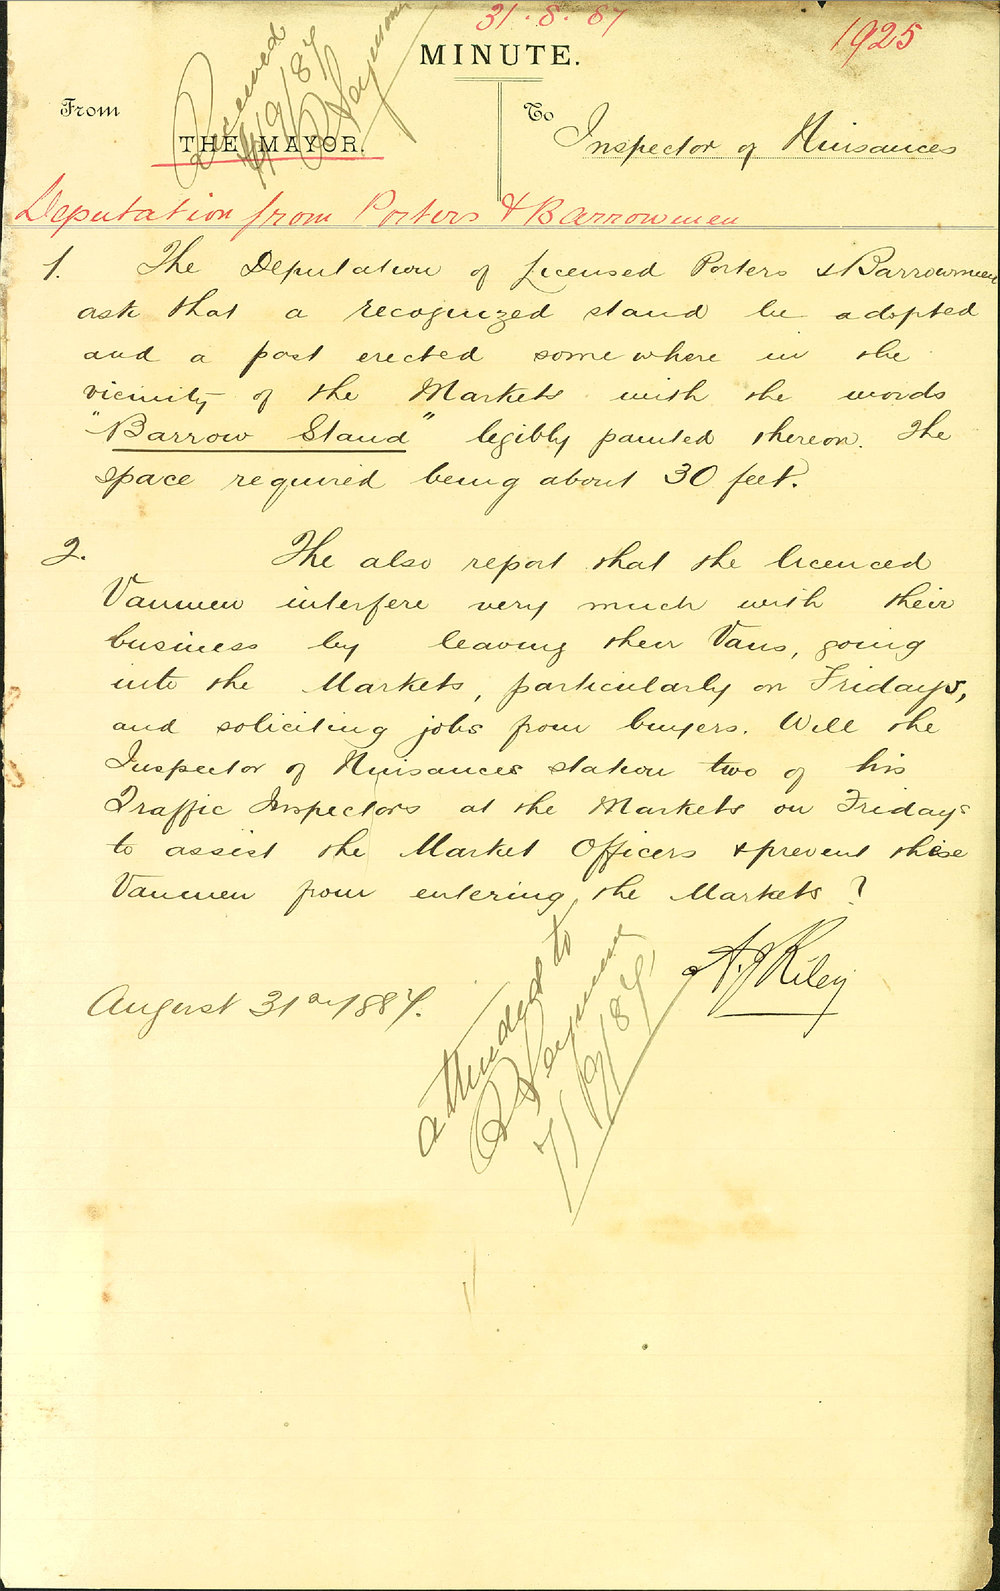 31.8.87
1925
MINUTE.
Received
/9/87
R Seymour
From
THE MAYOR.
To
Inspector of Nuisances
Deputation from Porters & Barrowmen
1. The Deputation of Licensed Porters & Barrowmen
ask that a recognized stand be adopted
and a post erected somewhere in the
vicinity of the Markets with the words
"Barrow Stand" legibly painted thereon. The
space required being about 30 feet.
2. The also report that the licenced
Vanmen interfere very much with their
business by leaving their Vans, going
into the Markets, particularly on Fridays,
and soliciting jobs from buyers. Will the
Inspector of Nuisances station two of his
Traffic Inspectors at the Markets on Fridays
to assist the Market Officers & prevent these
Vanmen from entering the Markets?
A J Riley
August 31st 1887.
attended to
R Seymour
7/9/87